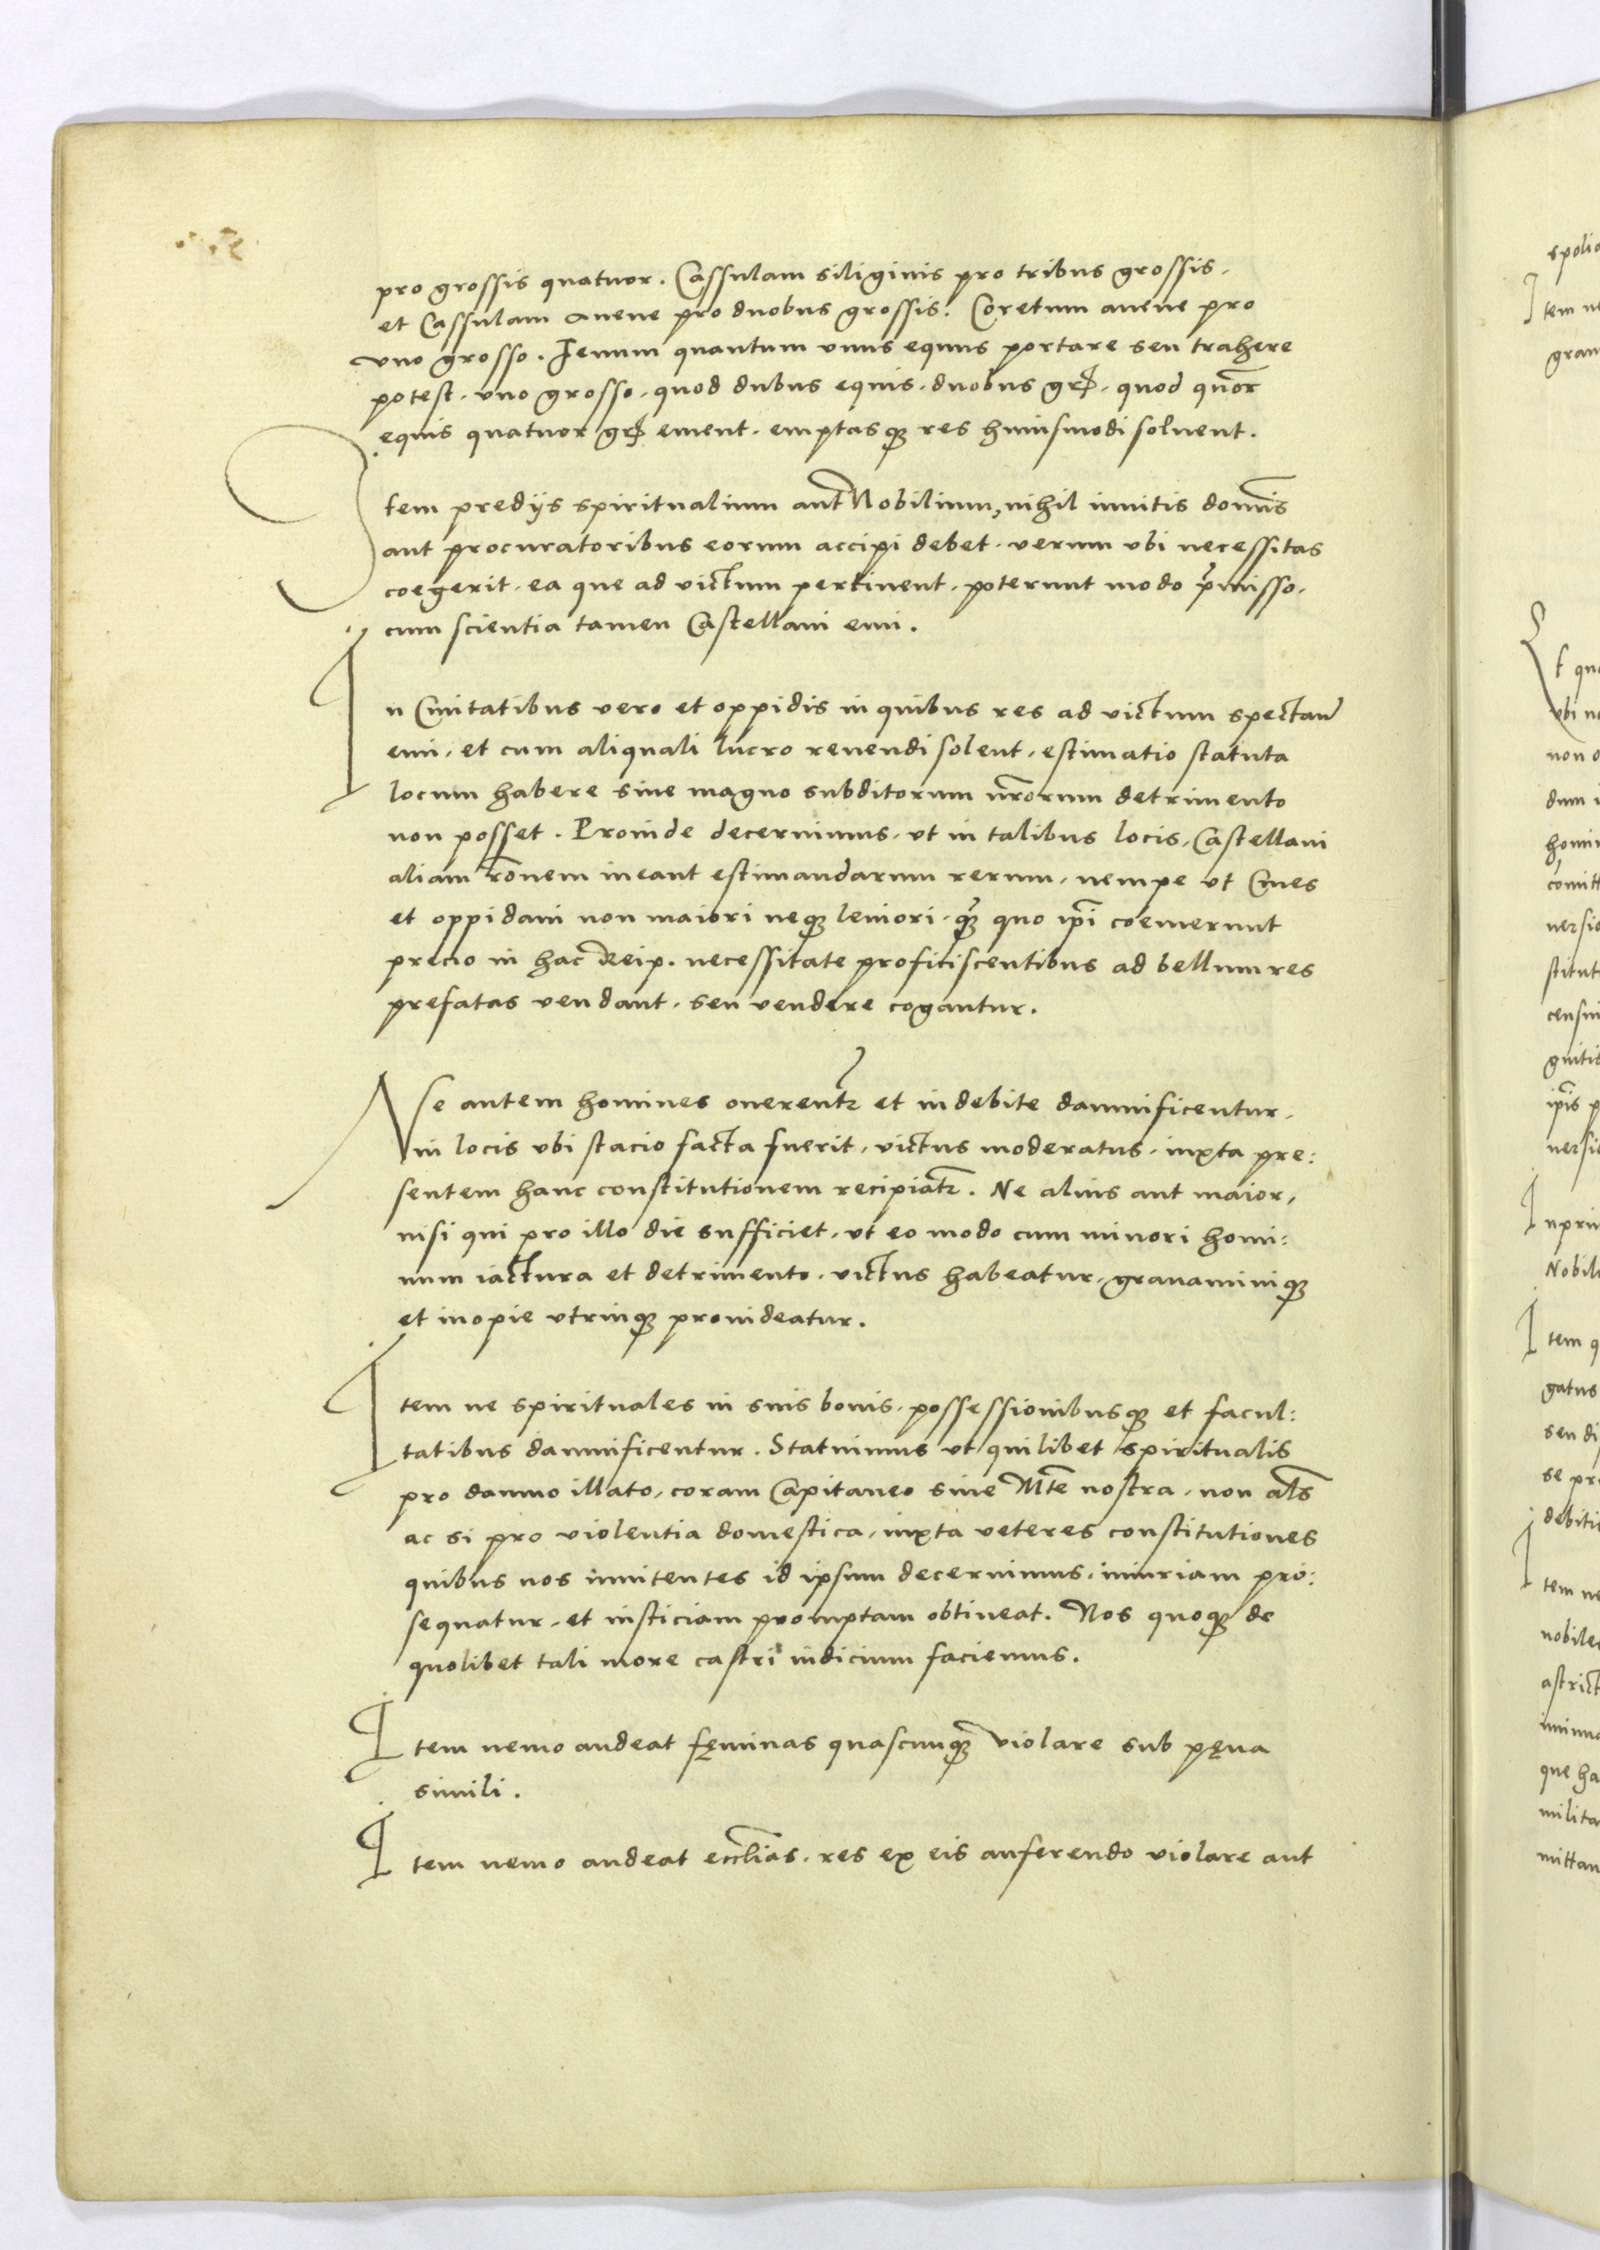 pro grossis quatuor. Cassulam siliginis pro tribus grossis,
et Cassulam auene pro duobus grossis. Coretum auene pro
vno grosso. Fenum quantum vnus equus portare seu trahere
potest, vno grosso, quod dubus equis, duobus gr̃, quod quor̃
equis quatuor gr̃ ement, emptasq; res huiusmodi soluent.
Item predijs spiritualium aut Nobilium, nihil inuitis dom̃is
aut procuratoribus eorum accipi debet, verum vbi necessitas
coegerit, ea que ad victum pertinent, poterunt modo p̃misso,
cum scientia tamen Castellani emi.
In Ciuitatibus vero et oppidis in quibus res ad victum spectan̄
emi, et cum aliquali lucro reuendi solent, estimatio statuta
locum habere sine magno subditorum nr̃orum detrimento
non posset. Proinde decernimus, vt in talibus locis, Castellani
aliam rõnem ineant estimandarum rerum, nempe vt Ciues
et oppidani non maiori neq; leuiori, q̃ quo ip̃i coemerunt
precio in hac Reip. necessitate proficiscentibus ad bellum res
prefatas vendant, seu vendere cogantur.
Ne autem homines onerent᷑ et indebite damnificentur,
in locis vbi stacio facta fuerit, victus moderatus, iuxta pre:
sentem hanc constitutionem recipiat᷑. Ne alius aut maior,
nisi qui pro illo die sufficiet, vt eo modo cum minori homi:
num iactura et detrimento, victus habeatur, grauaminiq;
et inopie vtrinq; prouideatur.
Item ne spirituales in suis bonis, possessionibusq; et facul:
tatibus damnificentur. Statuimus vt quilibet spiritualis
pro damno illato, coram Capitaneo siue Mte nostra, non al̃s
ac si pro violentia domestica, iuxta veteres constitutiones
quibus nos innitentes id ipsum decernimus, iniuriam pro:
sequatur, et iusticiam promptam obtineat. Nos quoq; de
quolibet tali more castri iudicium faciemus.
Item nemo audeat fęminas quascunq; violare sub pęna
simili.
Item nemo audeat eccl̃ias, res ex eis auferendo violare aut